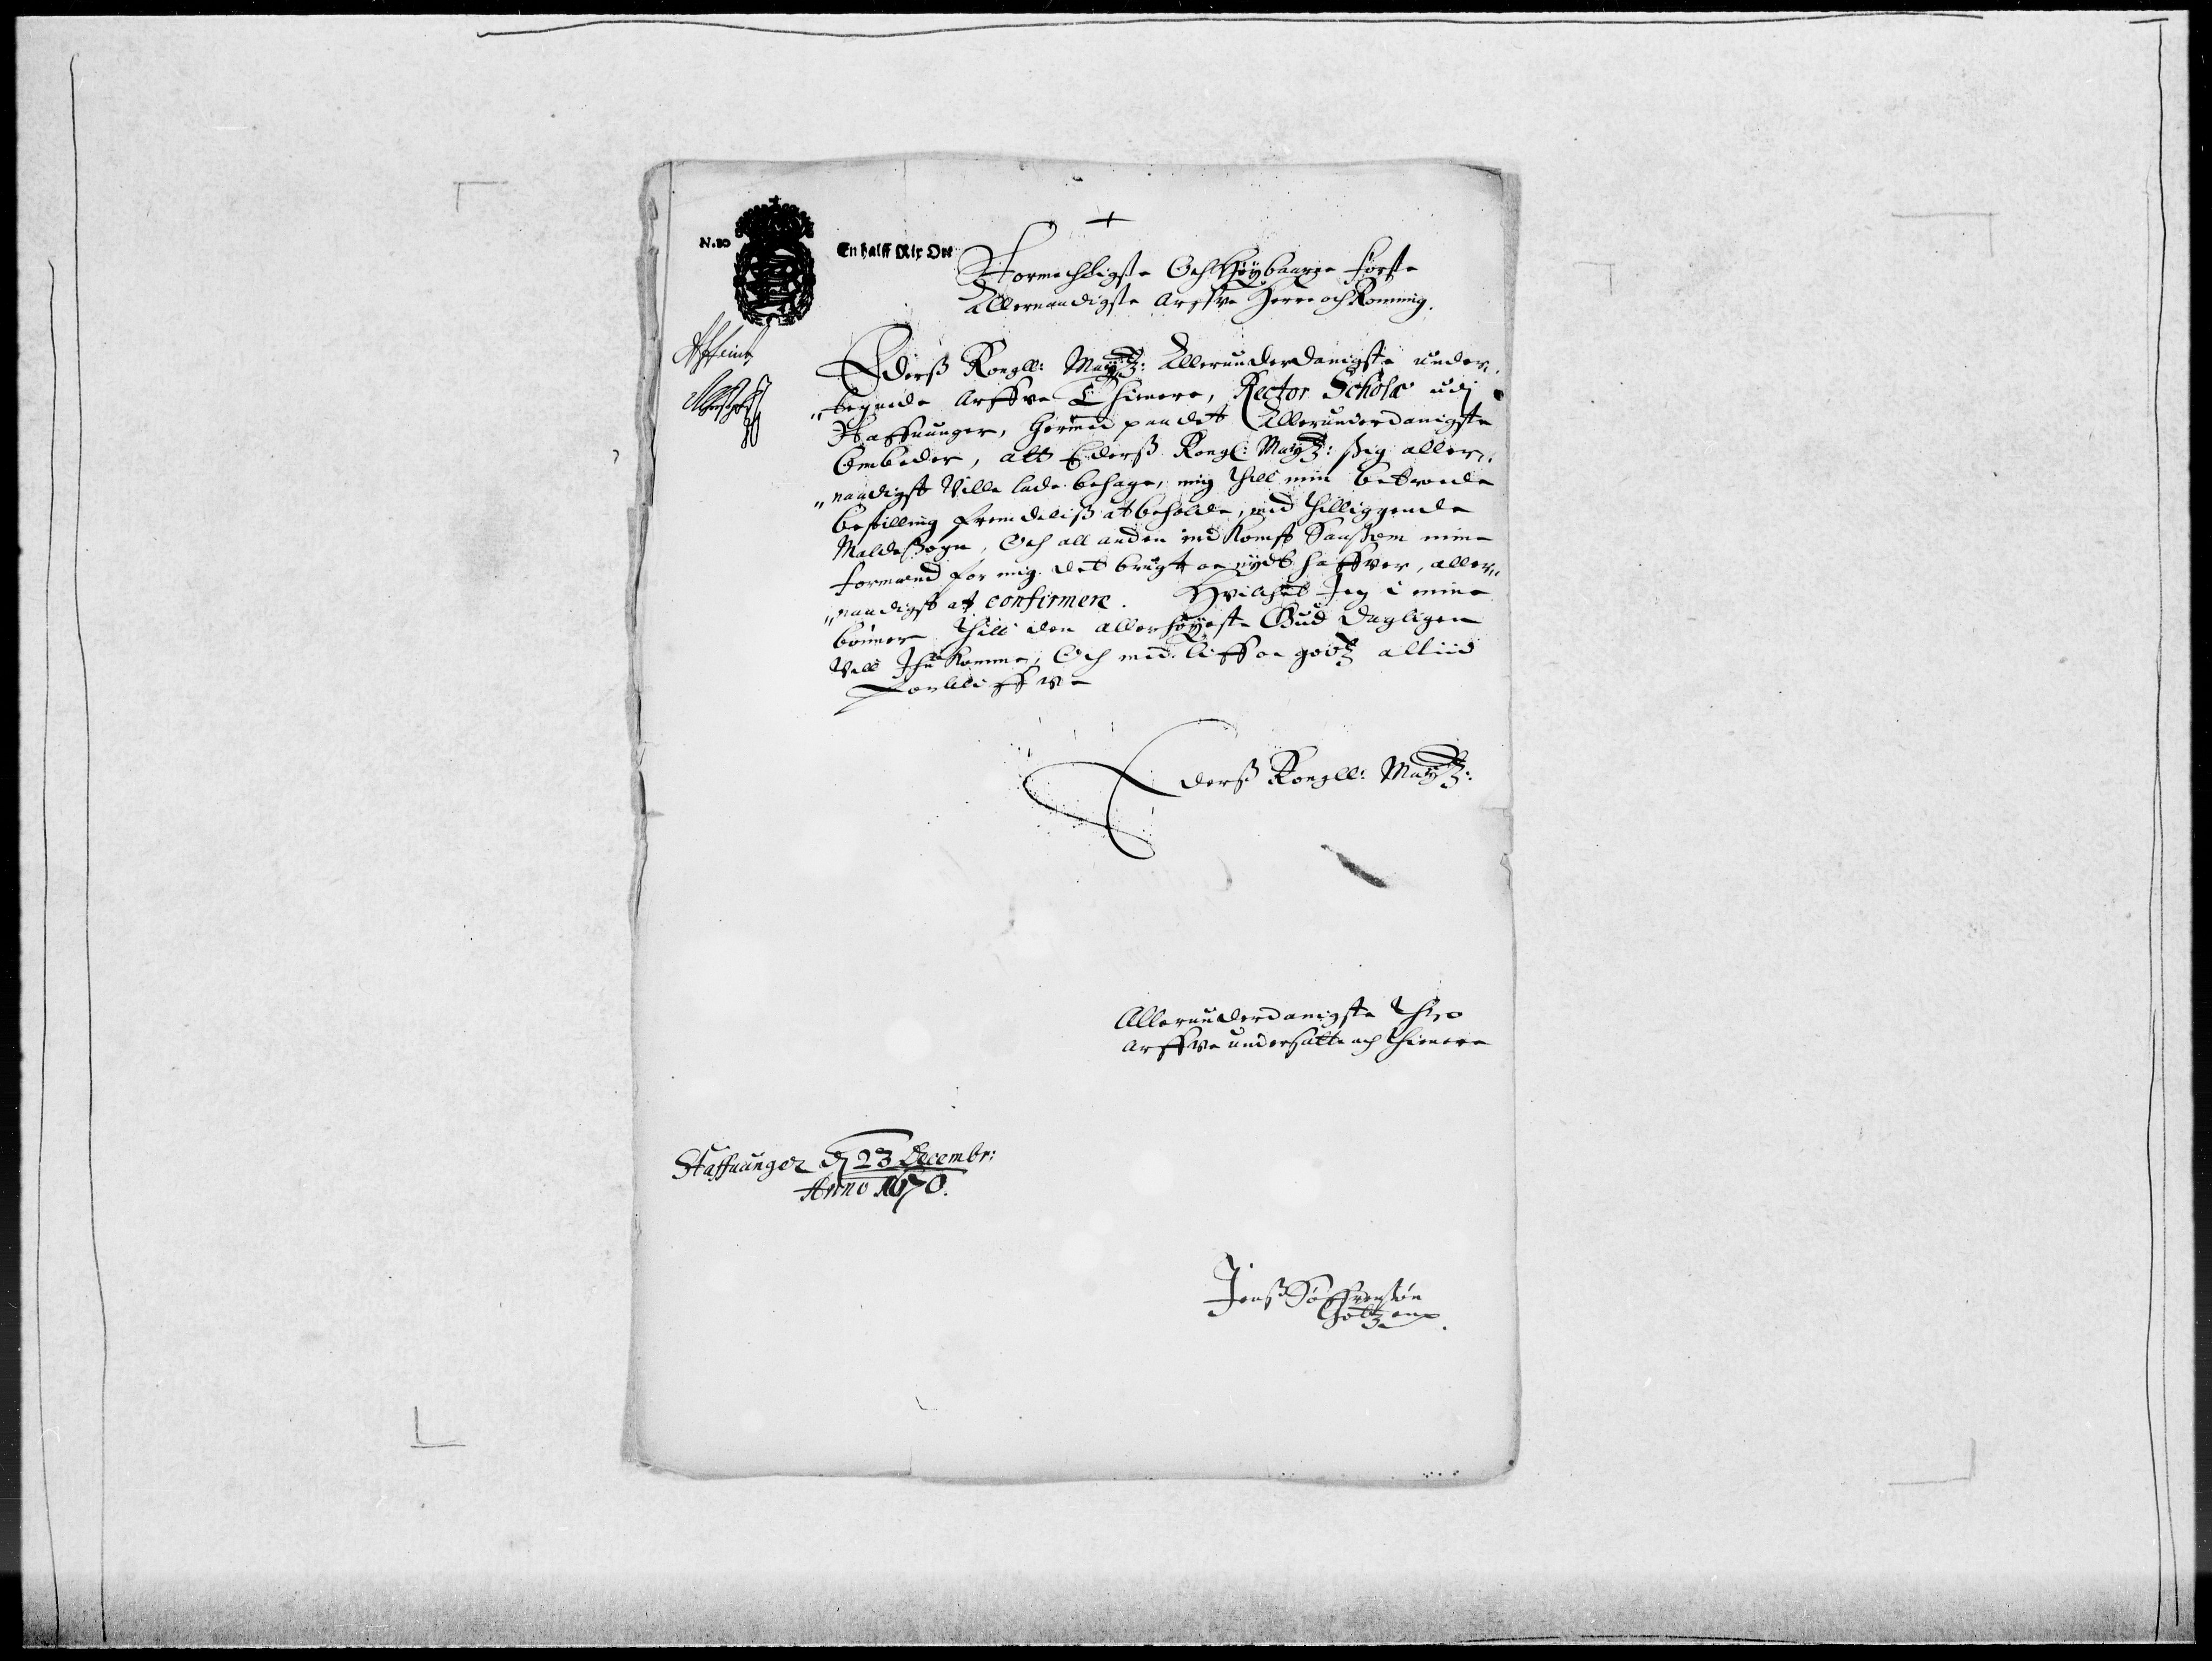 N. 20
En halff Rix Ort
Stormechtigste Och Høybaarne Første
Allernaadigste Arffve Herre och Konning.
Ederß Kongll: Maytz: Allerunderdanigste under„
„tegnede Arffve Thienere, Rector Scholæ udj
Staffuanger, hermed paa det Allerunderdanigste
Ombeder, att Ederß Kongl: Maytz: sig aller„
„naadigst Ville lade behage, mig till min betroede
bestilling fremdeliß at beholde, med tilliggende
Maldeßogn, Och all anden indkomst Saaßom mine
formænd for mig det brugt oc nydt haffver, aller„
„naadigst at confirmere. Hvilchet Jeg i mine
bønner till den allerhøyeste Gud dagligen
Vill Ihu komme, Och med liff oc godtz altiid
forbliffve
Ederß Kongll: Maytz:
Allerunderdanigste Thro
Arffve undersaatte och thienere
Staffuanger d 23 Decembr:
Anno 1670.
Jenß Søffrenßøn